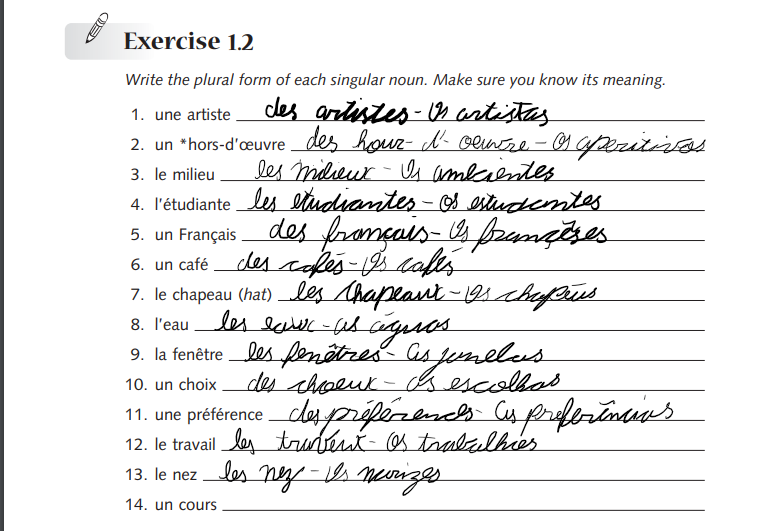 Exercise 1.2
Write the plural form of each singular noun. Make sure you know its meaning.
1. une artiste des artistes - Os artistas
2. un *hors-d'œuvre des hour-d'-oeuvre - Os aperitivos
3. le milieu les milieux - Os ambientes
4. l'étudiante les etudiantes - Os estudantes
5. un Français des français - Os françêses
6. un café des cafés - Os cafés
7. le chapeau (hat) les chapeaux - Os chapéus
8. l'eau les eaux - as águas
9. la fenêtre les fenêtres - As janelas
10. un choix des choeux - as escolhas
11. une préférence des préférences - As preferências
12. le travail les - Os trabalhos
13. le nez les nez - Os narizes
14. un cours